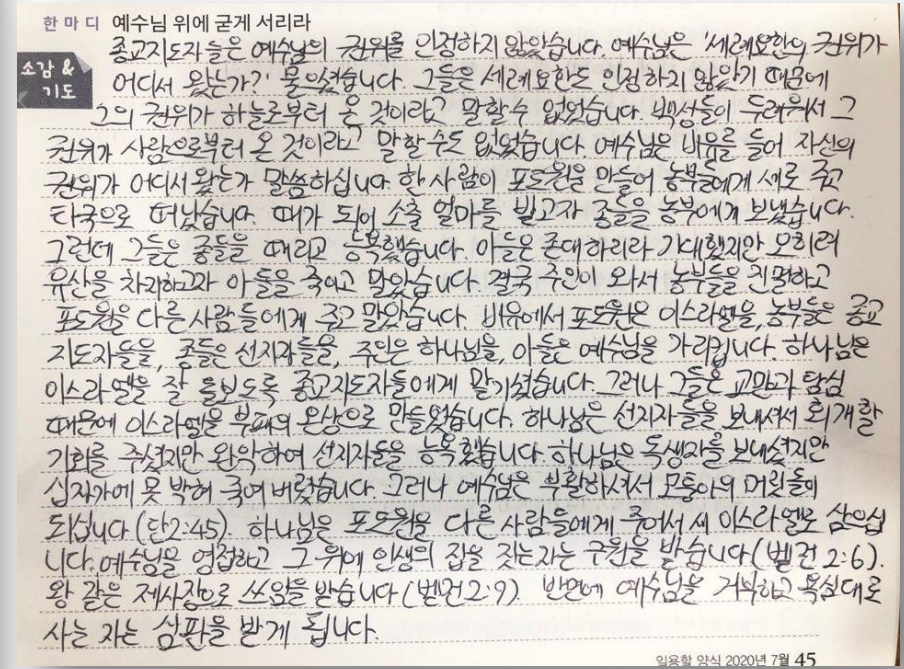 한마디 예수님 위에 굳게 서리라
종교지도자들은 예수님의 권위를 인정하지 않았습니다. 예수님은 '세례요한의 권위가
소감 &
기도
어디서 왔는가?' 물으셨습니다. 그들은 세례요한도 인정하지 않았기 때문에
그의 권위가 하늘로부터 온 것이라고 말할 수 없었습니다. 백성들이 두려워서 그
권위가 사람으로부터 온 것이라고 말할 수도 없었습니다. 예수님은 비유를 들어 자신의
권위가 어디서 왔는가 말씀하십니다. 한 사람이 포도원을 만들어 농부들에게 세로 주고
타국으로 떠났습니다. 때가 되어 소출 얼마를 받고자 종들을 농부에게 보냈습니다.
그런데 그들은 종들을 때리고 능욕했습니다. 아들은 존대하리라 기대했지만 오히려
유산을 차지하고자 아들을 죽이고 말았습니다. 결국 주인이 와서 농부들을 진멸하고
포도원을 다른 사람들에게 주고 말았습니다. 비유에서 포도원은 이스라엘을, 농부들은 종교
지도자들을, 종들은 선지자들을, 주인은 하나님을, 아들은 예수님을 가리킵니다. 하나님은
이스라엘을 잘 돌보도록 종교지도자들에게 맡기셨습니다. 그러나 그들은 교만과 탐심
때문에 이스라엘을 부패의 온상으로 만들었습니다. 하나님은 선지자들을 보내셔서 회개할
기회를 주셨지만 완악하여 선지자들을 능욕했습니다. 하나님은 독생자를 보내셨지만
십자가에 못 박혀 죽여 버렸습니다. 그러나 예수님은 부활하셔서 모퉁이의 머릿돌이
되십니다(단2:45). 하나님은 포도원을 다른 사람들에게 주어서 새 이스라엘로 삼으십
니다. 예수님을 영접하고 그 위에 인생의 집을 짓는 자는 구원을 받습니다(벧전 2:6).
왕 같은 제사장으로 쓰임을 받습니다(벧전2:9). 반면에 예수님을 거부하고 욕심대로
사는 자는 심판을 받게 됩니다.
일용할 양식 2020년 7월 45